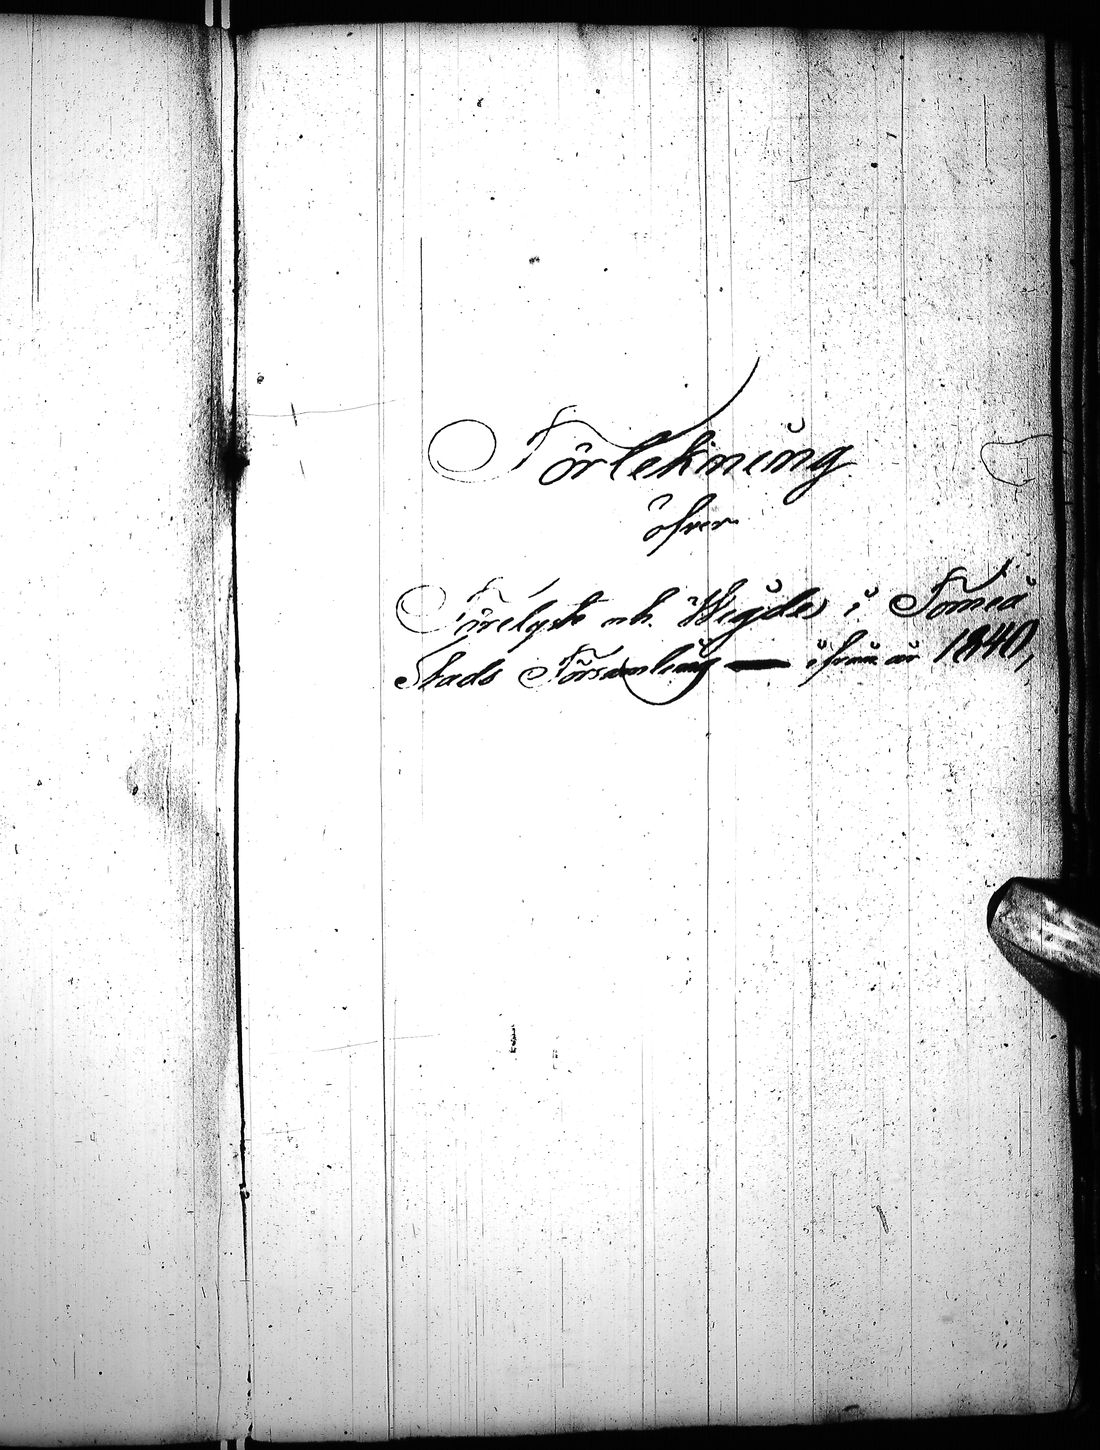 Förtekning
öfver
Förelyste och Wigde i Torneå
Stads Församling ifrån år 1840,